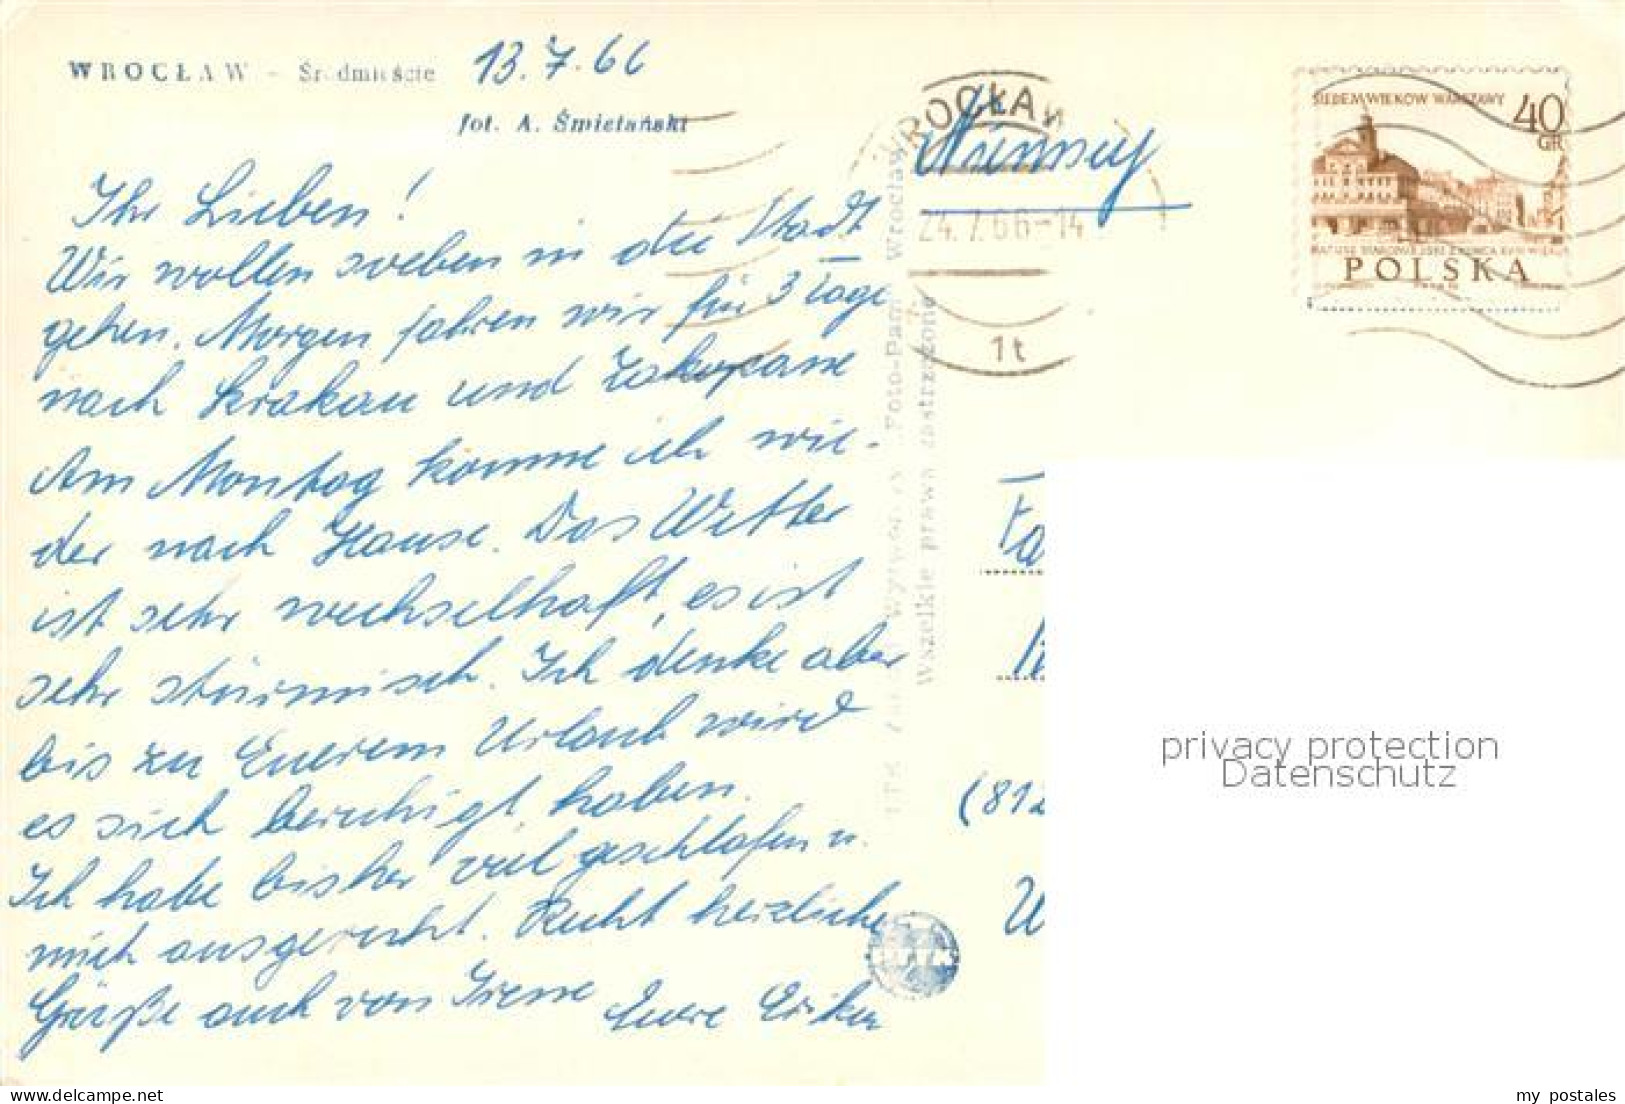 WROCŁAW - Śródmieście
13.7.66
fot. A. Śmietański
Ihr Lieben!
Wir wollen soeben in die Stadt
gehen. Morgen fahren wir für 3 Tage
nach Krakau und Zakopane
Am Montag komme ich wie-
der nach Hause. Das Wetter
ist sehr wechselhaft, es ist
sehr stürmisch. Ich denke aber
bis zu Eurem Urlaub wird
es sich beruhigt haben.
Ich habe bisher viel geschlafen u.
mich ausgeruht. Recht herzliche
Grüße auch von Irene Eure Erika
Wszelkie prawa zastrzeżone
WROCŁAW
24.7.66-14
1t
Niemcy
SIEDEM WIEKÓW WARSZAWY
40
GR
POLSKA
Fa
(812
W
PTTK
privacy protection
Datenschutz
my postales